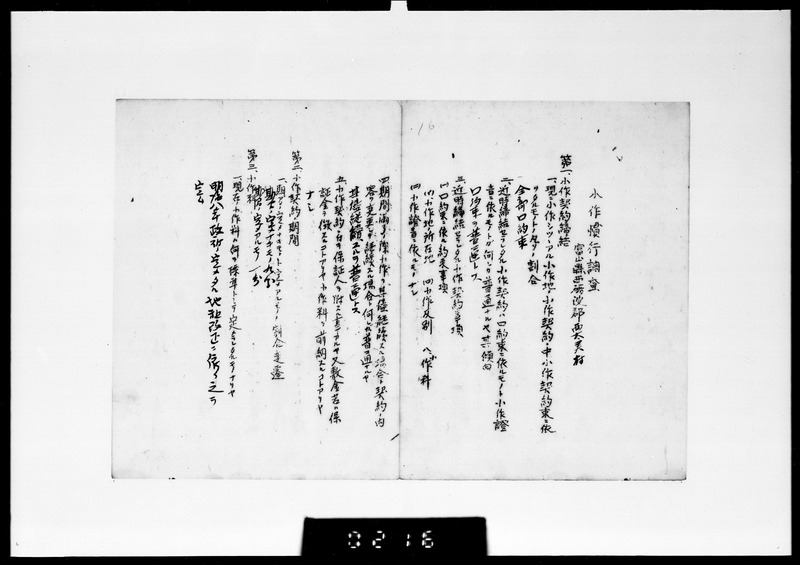 16
小作慣行調査
富山縣西礪波郡西太美村
第一、小作契約締結
一、現ニ小作シツヽアル小作地ノ小作契約中小作契約束ニ依
リタルモノト及ノ割合
全部口約束
二、近時締結セラレタル小作契約ハ口約束ニ依ルモノト小作證
書ニ依ルモノトガ何レガ普通ナルヤ其ノ傾向
口約束ヲ普通トス
三、近時締結セラレタル小作契約事項
(イ)口約束ニ依ル約束事項
(イ)小作地所在地 (ロ)小作反別 ハ、小作料
(ロ)小作證書ニ依ルモノナシ
四、期間満了ノ際小作ヲ其儘継続スル場合ニ契約ノ内
容ヲ変更シテ継続スル場合ト何レガ普通ナルヤ
其儘継続スルヲ普通トス
五、小作契約ニ当リ保証人ヲ附スル事アルヤ又敷金若ハ保
証金ヲ徴スルコトアリヤ小作料ヲ前納スルコトアリヤ
ナシ
第二、小作契約ノ期間
一、期間ノ定メナキモノト定メアルモノノ割合
期間ノ定メナキモノ 九分
期間ノ定メアルモノ 一分
第三、小作料
一、現在小作料ハ何ヲ標準トシテ定メラレタルモノナリヤ
明治八年政府ノ定メタル地租改正ニ依リ之ヲ
定ム
0216